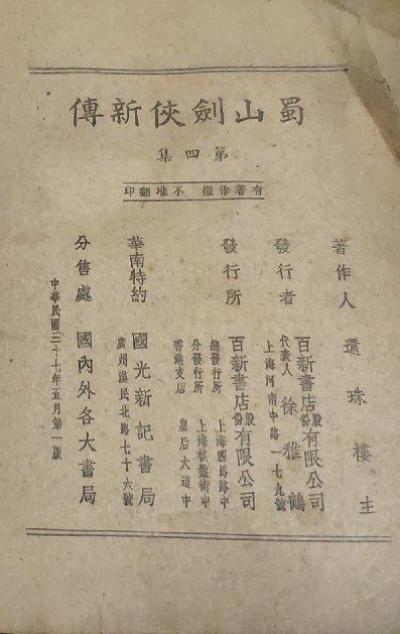 蜀山劍俠新傳
第四集
有著作權 不准翻印
著作人 還珠樓主
發行者 百新書店股份有限公司
代表人 徐雅鶴
上海河南中路一七九號
發行所 百新書店股份有限公司
總發行所 上海四馬路中
分發行所 上海棋盤街中
香港支店 皇后大道中
華南特約 國光新記書局
廣州漢民北路七十六號
分售處 國內外各大書局
中華民國三十七年五月第一版